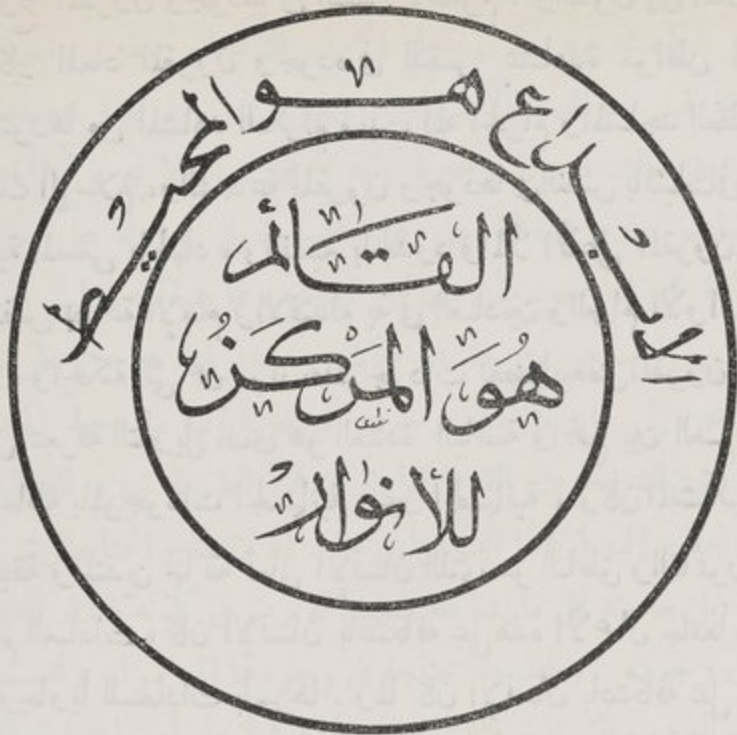 الابداع هو المحيط
القائم
هو المركز
للأنوار